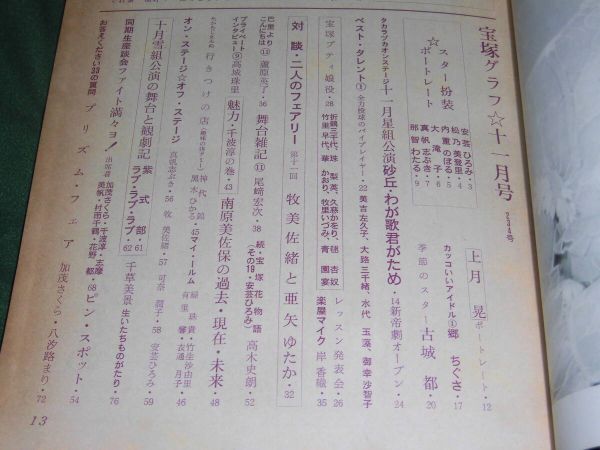 宝塚グラフ☆十一月号
スター扮装
☆ポートレート
安芸ひろみ・3
松乃美登里・4
内重のぼる・5
大滝子・6
真帆志ぶき・7
那智わたる・9
上月晃 ポートレート・12
カッコいいアイドル① 郷ちぐさ・17
季節のスター 古城都・20
タカラヅカオンステージ 十一月星組公演 砂丘・わが歌君がため・14
新帝劇オープン・24
ベスト・タレント① 全力投球のバイプレイヤー・22 美吉左久子、大路三千緒、水代玉藻、御幸沙智子
宝塚プティ娘役・28
レッスン発表会・26
楽屋マイク 岸香織・35
対談・二人のフェアリー 第十一回 牧美佐緒と亜矢ゆたか・32
巴里よりこんにちは⑪ 蘆原英了・36
舞台雑記⑪ 尾崎宏次・38
続・宝塚花物語(その19・安芸ひろみ) 高木史朗・52
プライベートインタビュー⑨ 高城珠里
魅力・千波淳の巻・43
南原美佐保の過去・現在・未来・48
行きつけの店
神代錦
黒木ひかる・45
マイ・ルーム
オン・ステージ☆オフ・ステージ
真帆志ぶき・56
牧美佐緒・57
可奈潤子・58
安芸ひろみ・59
十月雪組公演の舞台と観劇記
紫式部・61
ラブ・ラブ・ラブ・62
千草美景 生いたちものがたり・76
同期生座談会 ファイト満々ヨ!
出席者 加茂さくら・千波淳・志摩美帆・村雨千鶴・花野都・68
ピン・スポット・54
お答えください33の質問
プリズム・フェア 加茂さくら・八汐路まり・72
13